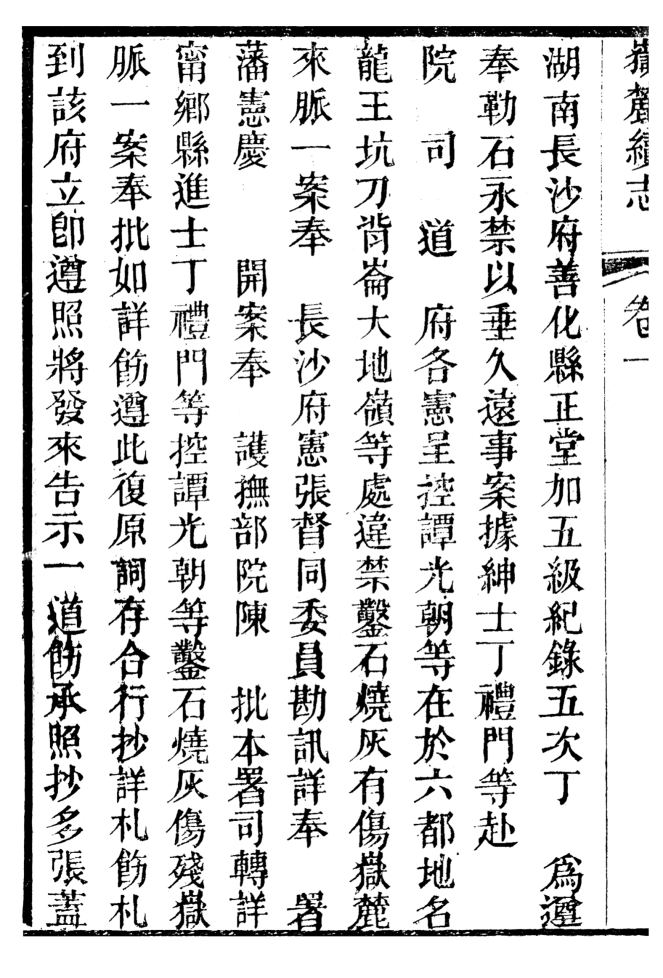 嶽麓續志 卷一
湖南長沙府善化縣正堂加五級紀錄五次丁 爲遵
奉勒石永禁以垂久遠事案據紳士丁禮門等赴
院 司 道 府各憲呈控譚光朝等在於六都地名
龍王坑刀背崙大地嶺等處違禁鑿石燒灰有傷嶽麓
來脈一案奉 長沙府憲張督同委員勘訊詳奉 署
藩憲慶 開案奉 護撫部院陳 批本署司轉詳
甯鄉縣進士丁禮門等控譚光朝等鑿石燒灰傷殘嶽
脈一案奉批如詳飭遵此復原詞存合行抄詳札飭札
到該府立卽遵照將發來告示一道飭承照抄多張蓋